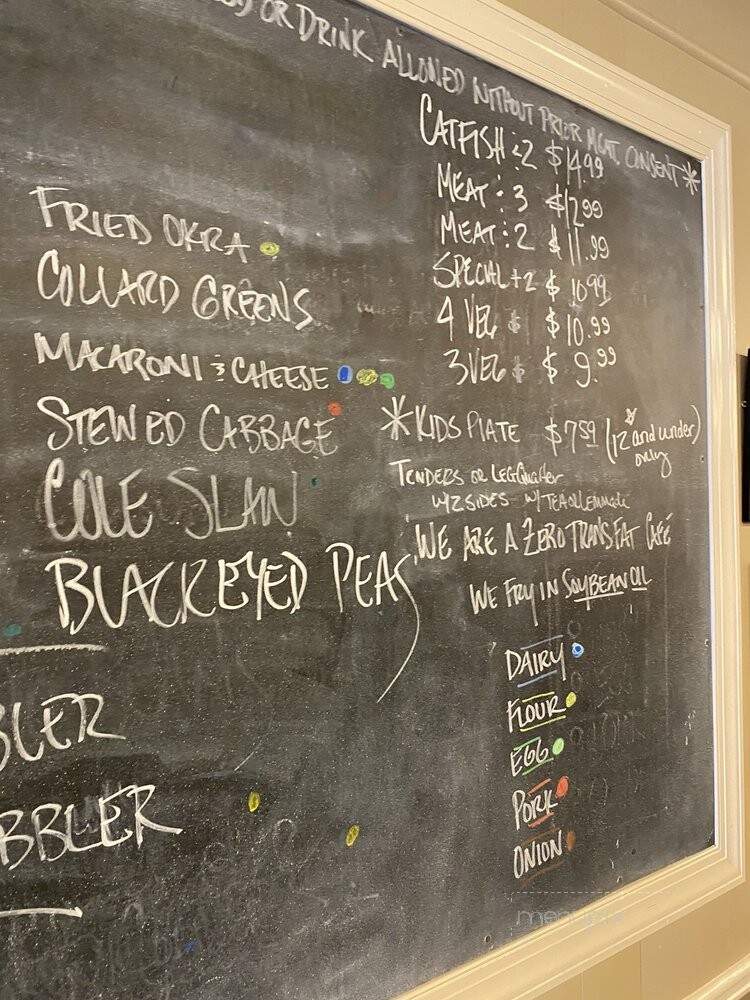 OR DRINK ALLOWED WITHOUT PRIOR MGMT. CONSENT*
FRIED OKRA
COLLARD GREENS
MACARONI & CHEESE
STEWED CABBAGE
COLE SLAW
BLACKEYED PEAS
BLER
BBLER
CATFISH + 2 $14.99
MEAT + 3 $12.99
MEAT + 2 $11.99
SPECIAL + 2 $10.99
4 VEG $ $10.99
3 VEG $ $9.99
*KIDS PLATE $7.59 (12 and under)
only
TENDERS OR LEG QUARTER
W/2 SIDES W/ TEA OR LEMONADE
WE ARE A ZERO TRANS FAT CAFÉ
WE FRY IN SOYBEAN OIL
DAIRY
FLOUR
EGG
PORK
ONION